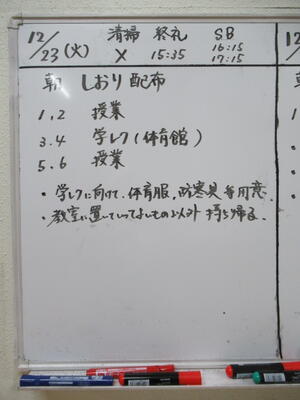 12/23(火) 清掃 × 終礼 15:35 SB 16:15 17:15
朝 しおり配布
1,2 授業
3.4 学レク(体育館)
5.6 授業
・学レクに向けて、体育服、防寒具等用意
・教室に置いていってよいもの以外持ち帰る。